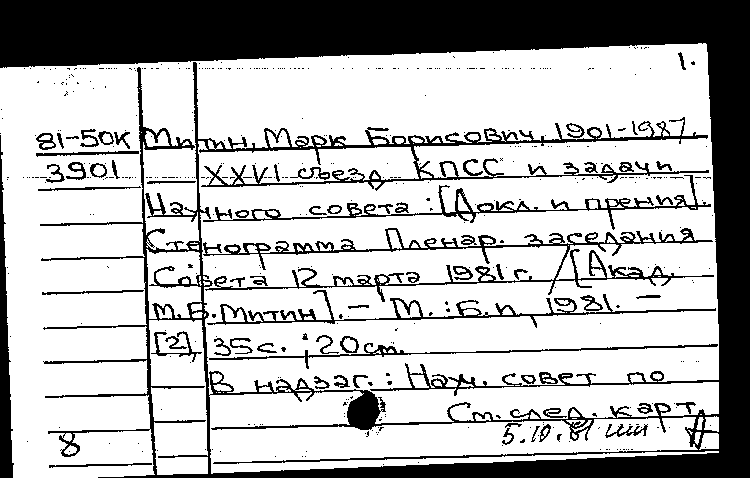 1.
81-50К Митин, Марк Борисович, 1901-1987.
3901 XXVI съезд КПСС и задачи
Научного совета : [Докл. и прения].
Стенограмма Пленар. заседания
Совета 12 марта 1981 г. / [Акад.
М.Б.Митин]. — М. : Б.и, 1981. —
[2], 35 с. ; 20 см.
В надзаг. : Науч. совет по
См. след. карт.
8 5.10.81